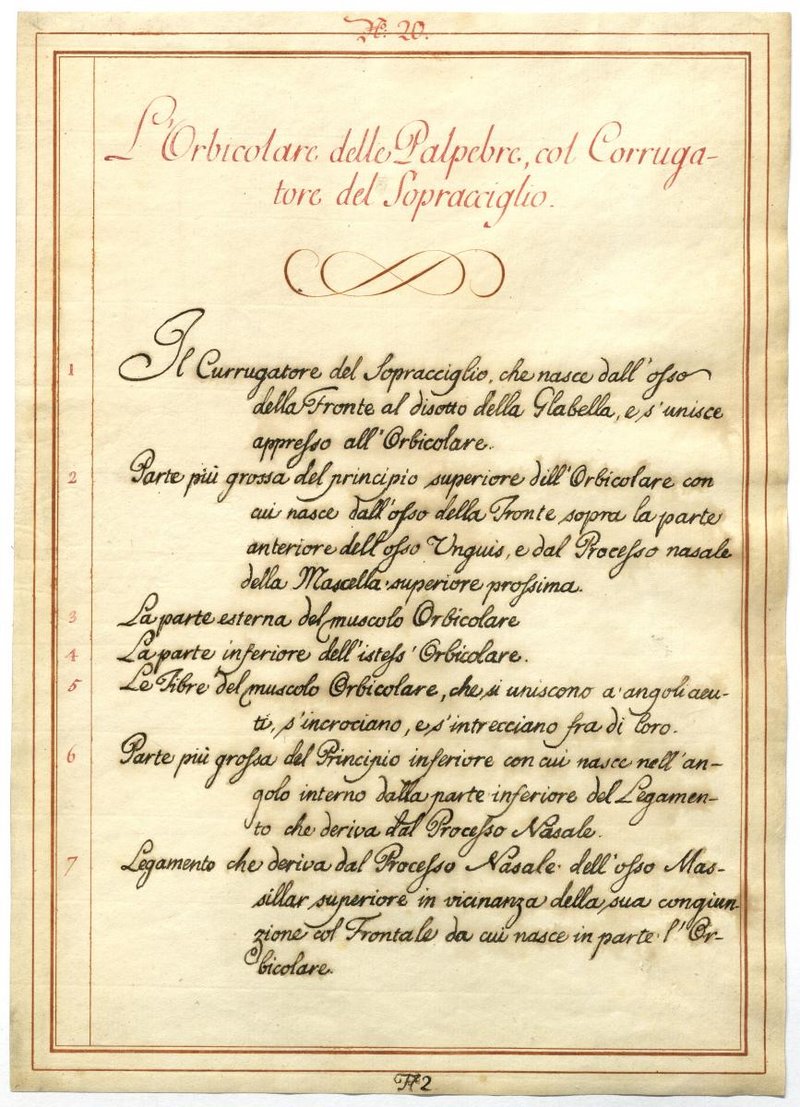 N.º 20.
L'Orbicolare delle Palpebre, col Corruga-
tore del Sopracciglio.
1 Il Currugatore del Sopracciglio, che nasce dall'osso
della Fronte al disotto della Glabella, e s'unisce
appresso all'Orbicolare.
2 Parte più grossa del principio superiore dill'Orbicolare con
cui nasce dall'osso della Fronte sopra la parte
anteriore dell'osso Unguis, e dal Processo nasale
della Mascella superiore prossima.
3 La parte esterna del muscolo Orbicolare
4 La parte inferiore dell'istess' Orbicolare.
5 Le Fibre del muscolo Orbicolare, che si uniscono a' angoli acu-
ti, s'incrociano, e s'intrecciano fra di loro.
6 Parte più grossa del Principio inferiore con cui nasce nell'an-
golo interno dalla parte inferiore del Legamen-
to che deriva dal Processo Nasale.
7 Legamento che deriva dal Processo Nasale dell'osso Mas-
sillar superiore in vicinanza della sua congiun-
zione col Frontale da cui nasce in parte l'Or-
bicolare.